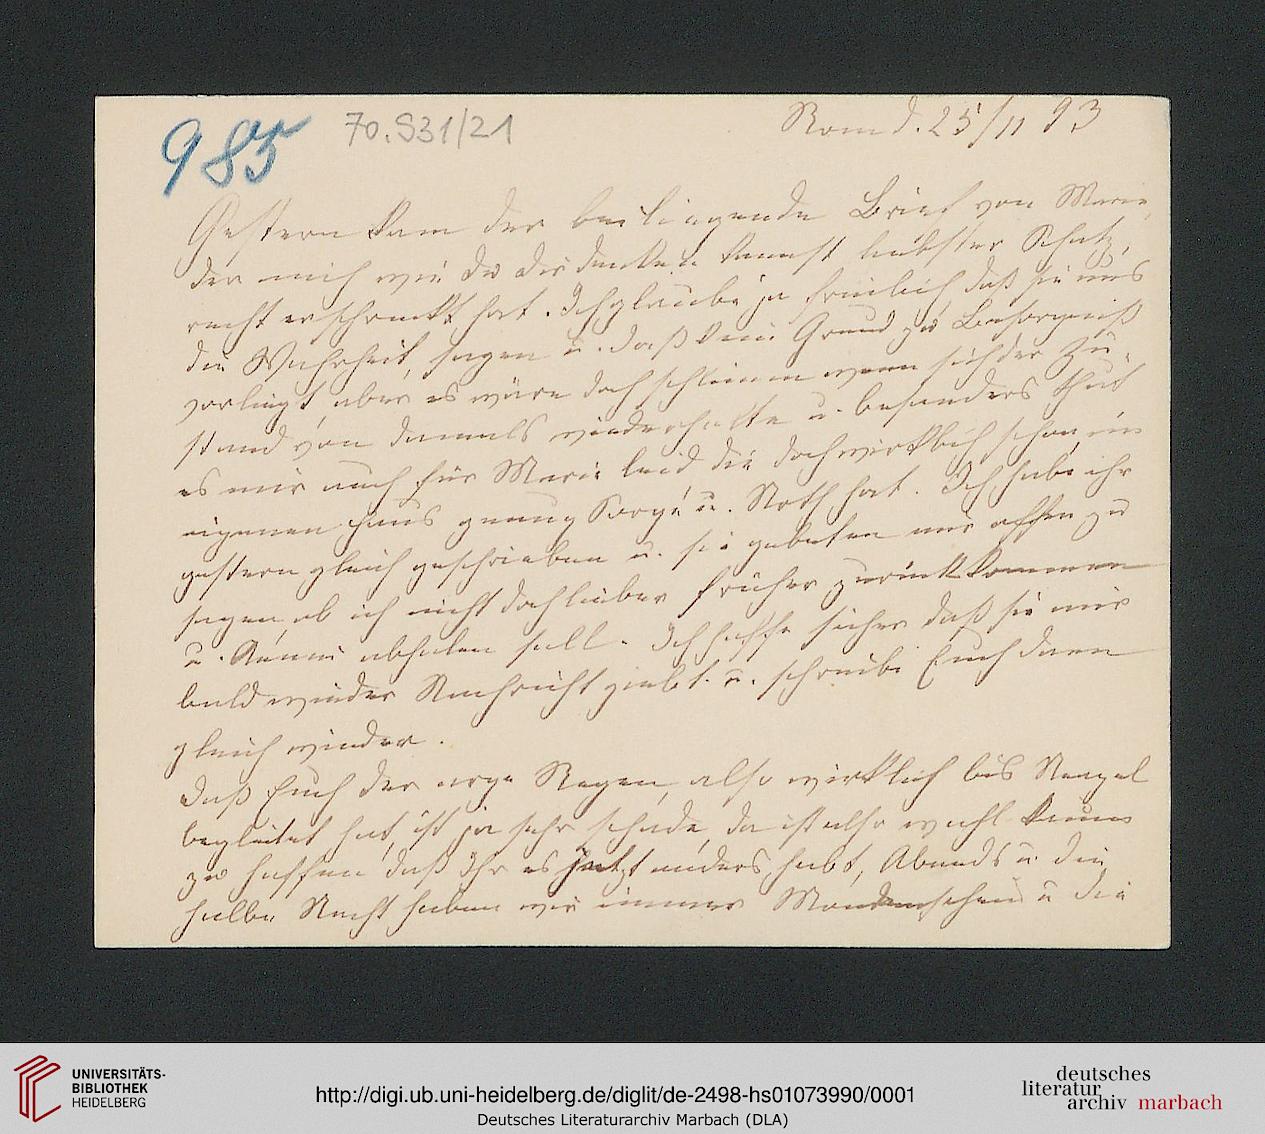 985
70.931/21
Rom d. 25/11 93
Gestern kam der beiliegende Brief von Marie,
der mich wie Du Dir denken kannst liebster Schatz,
recht erschreckt hat. Ich glaube ja freilich, daß sie uns
die Wahrheit sagen u. daß kein Grund zu Besorgniß
vorliegt, aber es wäre doch schlimm wenn sich der Zu-
stand von damals wiederholte u. besonders thut
es mir auch für Marie leid, die doch wirklich schon im
eigenen Haus genug Sorge u. Noth hat. Ich habe ihr
gestern gleich geschrieben u. sie gebeten mir offen zu
sagen, ob ich nicht doch lieber früher zurückkommen
u. abholen soll. Ich hoffe sicher daß sie mir
bald wieder Nachricht giebt u. schreibe Euch dann
gleich wieder.
Daß Euch der arge Regen also wirklich bis Neapel
begleitet hat, ist ja sehr schade, da ist also wohl kaum
zu hoffen daß Ihr es jetzt anders habt, Abends u. die
halbe Nacht haben wir immer Mondenschein u die
UNIVERSITÄTS-
BIBLIOTHEK
HEIDELBERG
http://digi.ub.uni-heidelberg.de/diglit/de-2498-hs01073990/0001
Deutsches Literaturarchiv Marbach (DLA)
deutsches
literatur
archiv marbach